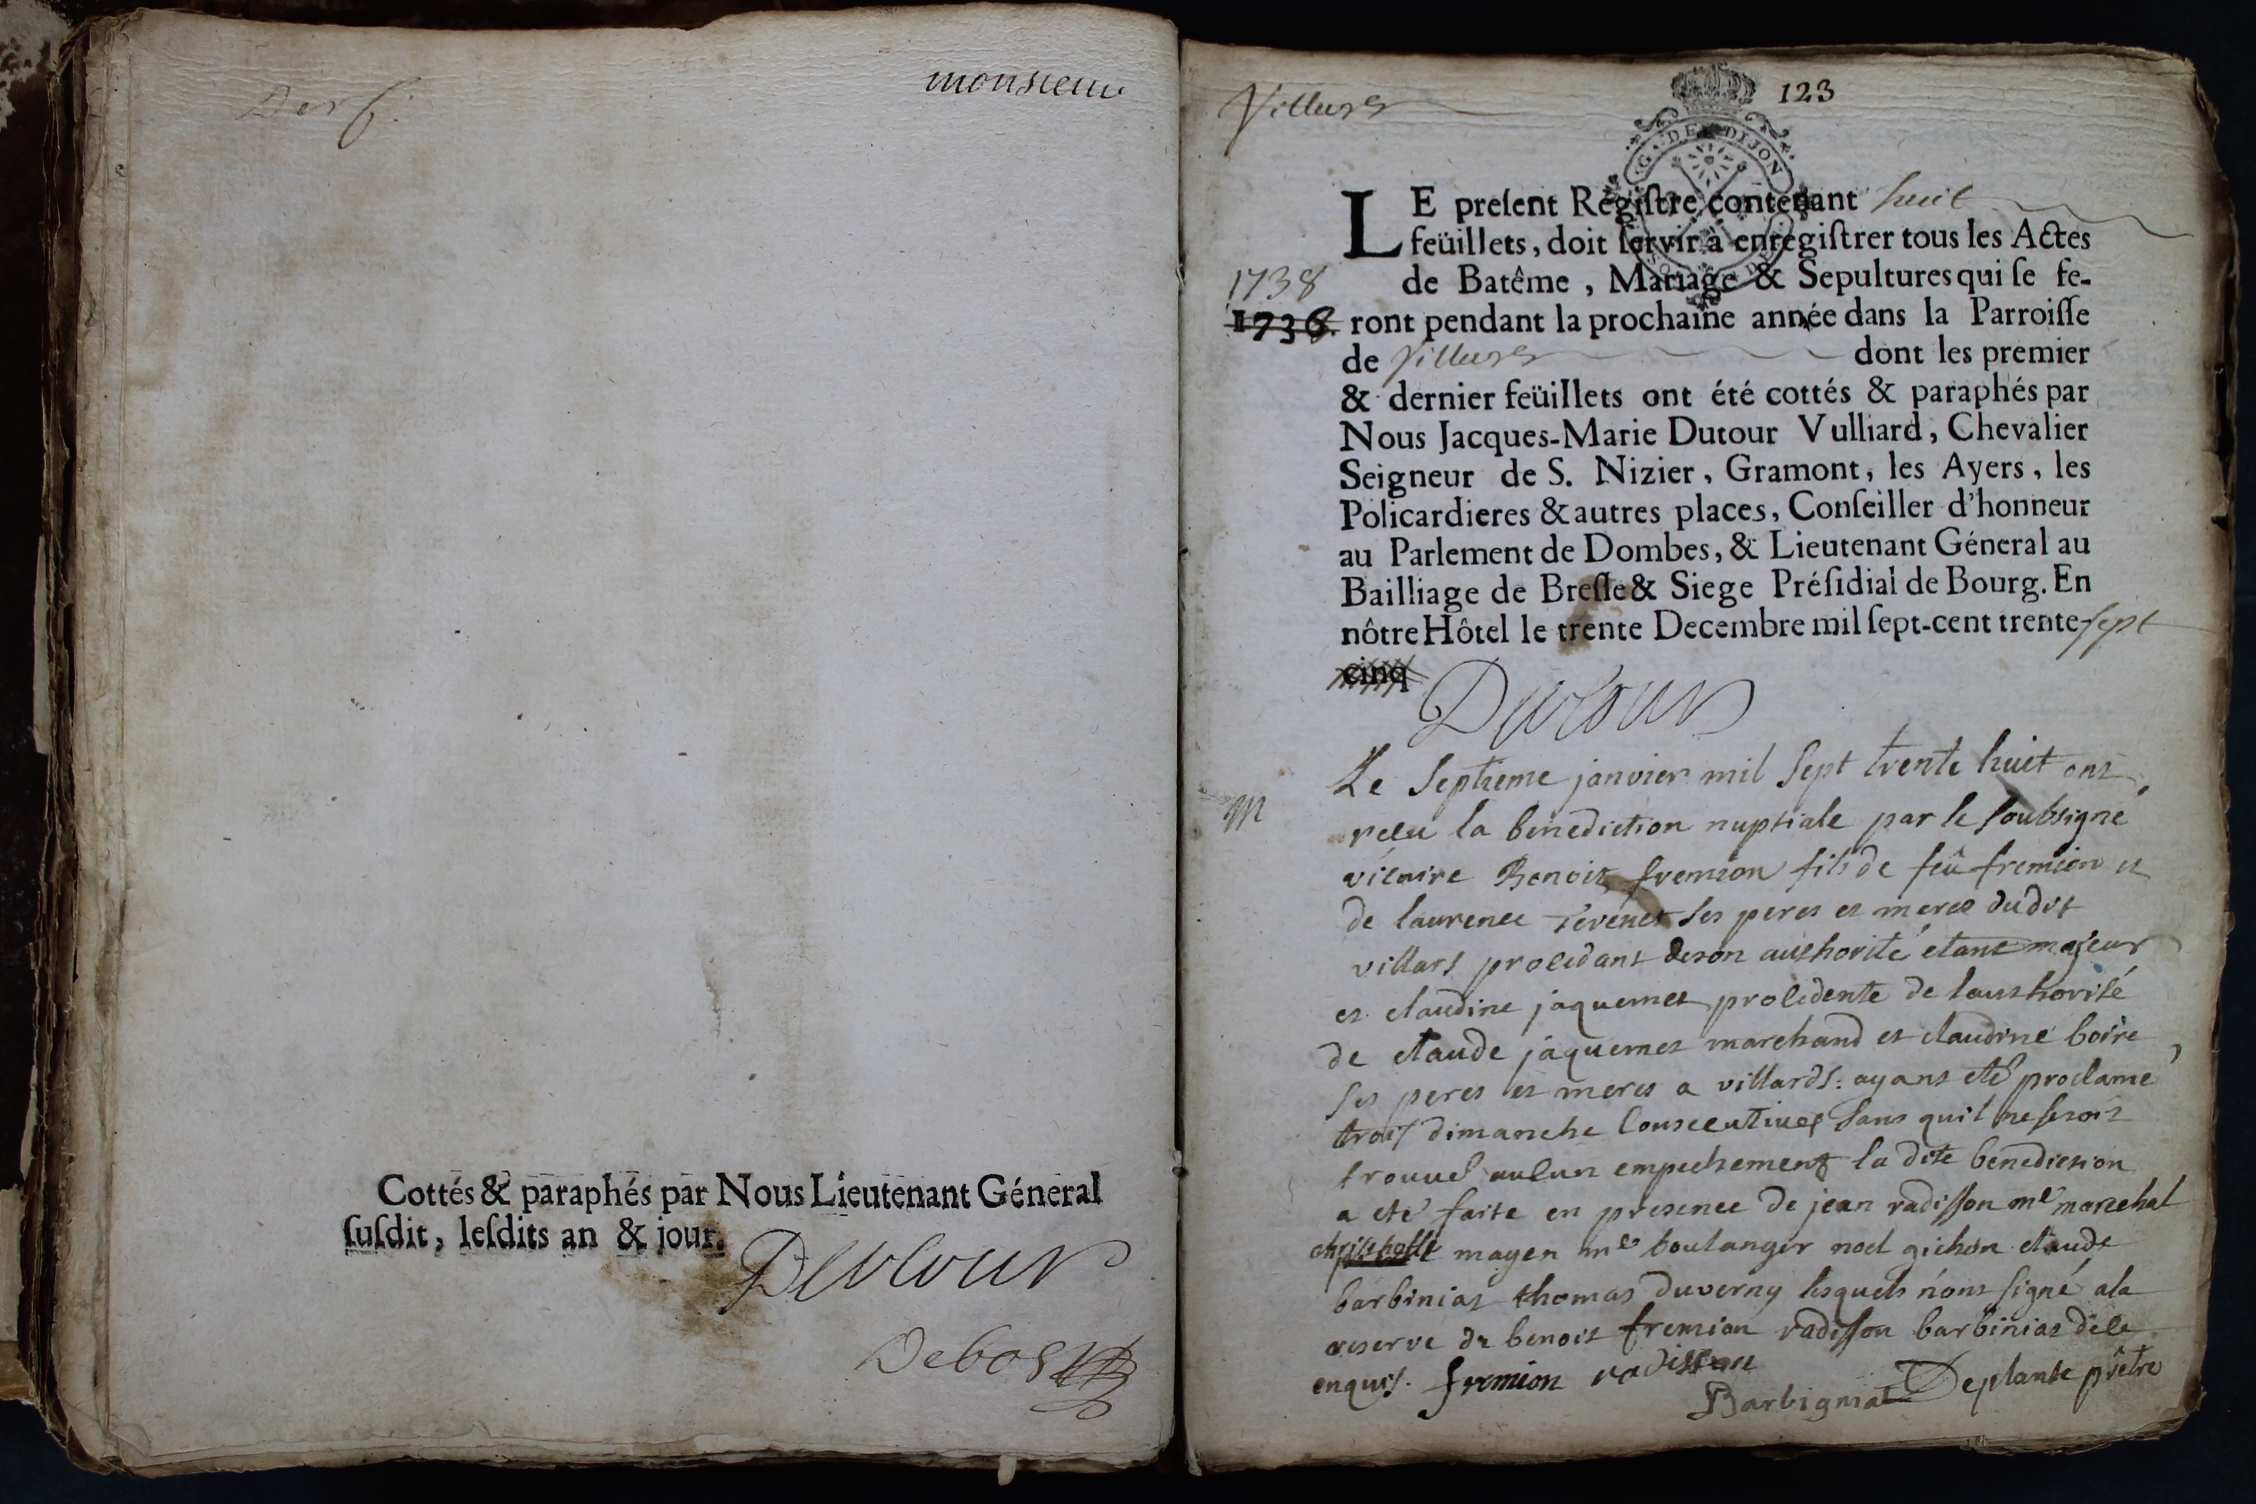 monsieur
Cottés & paraphés par Nous Lieutenant Géneral
ſuſdit, leſdits an & jour.
Dutour
Debost
Villars
123
G. DE DIJON
LE preſent Regiſtre contenant huit
feüillets, doit ſervir à enregiſtrer tous les Actes
de Batême, Mariage & Sepultures qui ſe fe-
1738
1736. ront pendant la prochaine année dans la Parroiſſe
de Villars dont les premier
& dernier feüillets ont été cottés & paraphés par
Nous Jacques-Marie Dutour Vulliard, Chevalier
Seigneur de S. Nizier, Gramont, les Ayers, les
Policardieres & autres places, Conſeiller d'honneur
au Parlement de Dombes, & Lieutenant Géneral au
Bailliage de Breſſe & Siege Préſidial de Bourg. En
nôtre Hôtel le trente Decembre mil ſept-cent trente-sept
cinq
Dutour
M
Le Septieme janvier mil Sept trente huit ont
recu la benediction nuptiale par le soubsigné
vicaire Benoit fremion fils de feû fremion et
de laurence Tevenet ses peres et meres dudit
villars procedant de son authorité etant majeur
et claudine jaquemet procedente de lauthorité
de claude jaquemet marchand et claudine boire
ses peres et meres a villards: ayant eté proclamé
trois dimanche Consecutives sans quil ne sesoit
trouvé aucun empechement la dite benediction
a eté faite en presence de jean radisson me marechal
christophle mayen me boulanger noel gichon claude
barbiniat thomas duverny lesquels n'ont signé a la
reserve de benoit fremion radisson barbiniat de ce
enquis. fremion radisson
Barbigniat Deplante prêtre